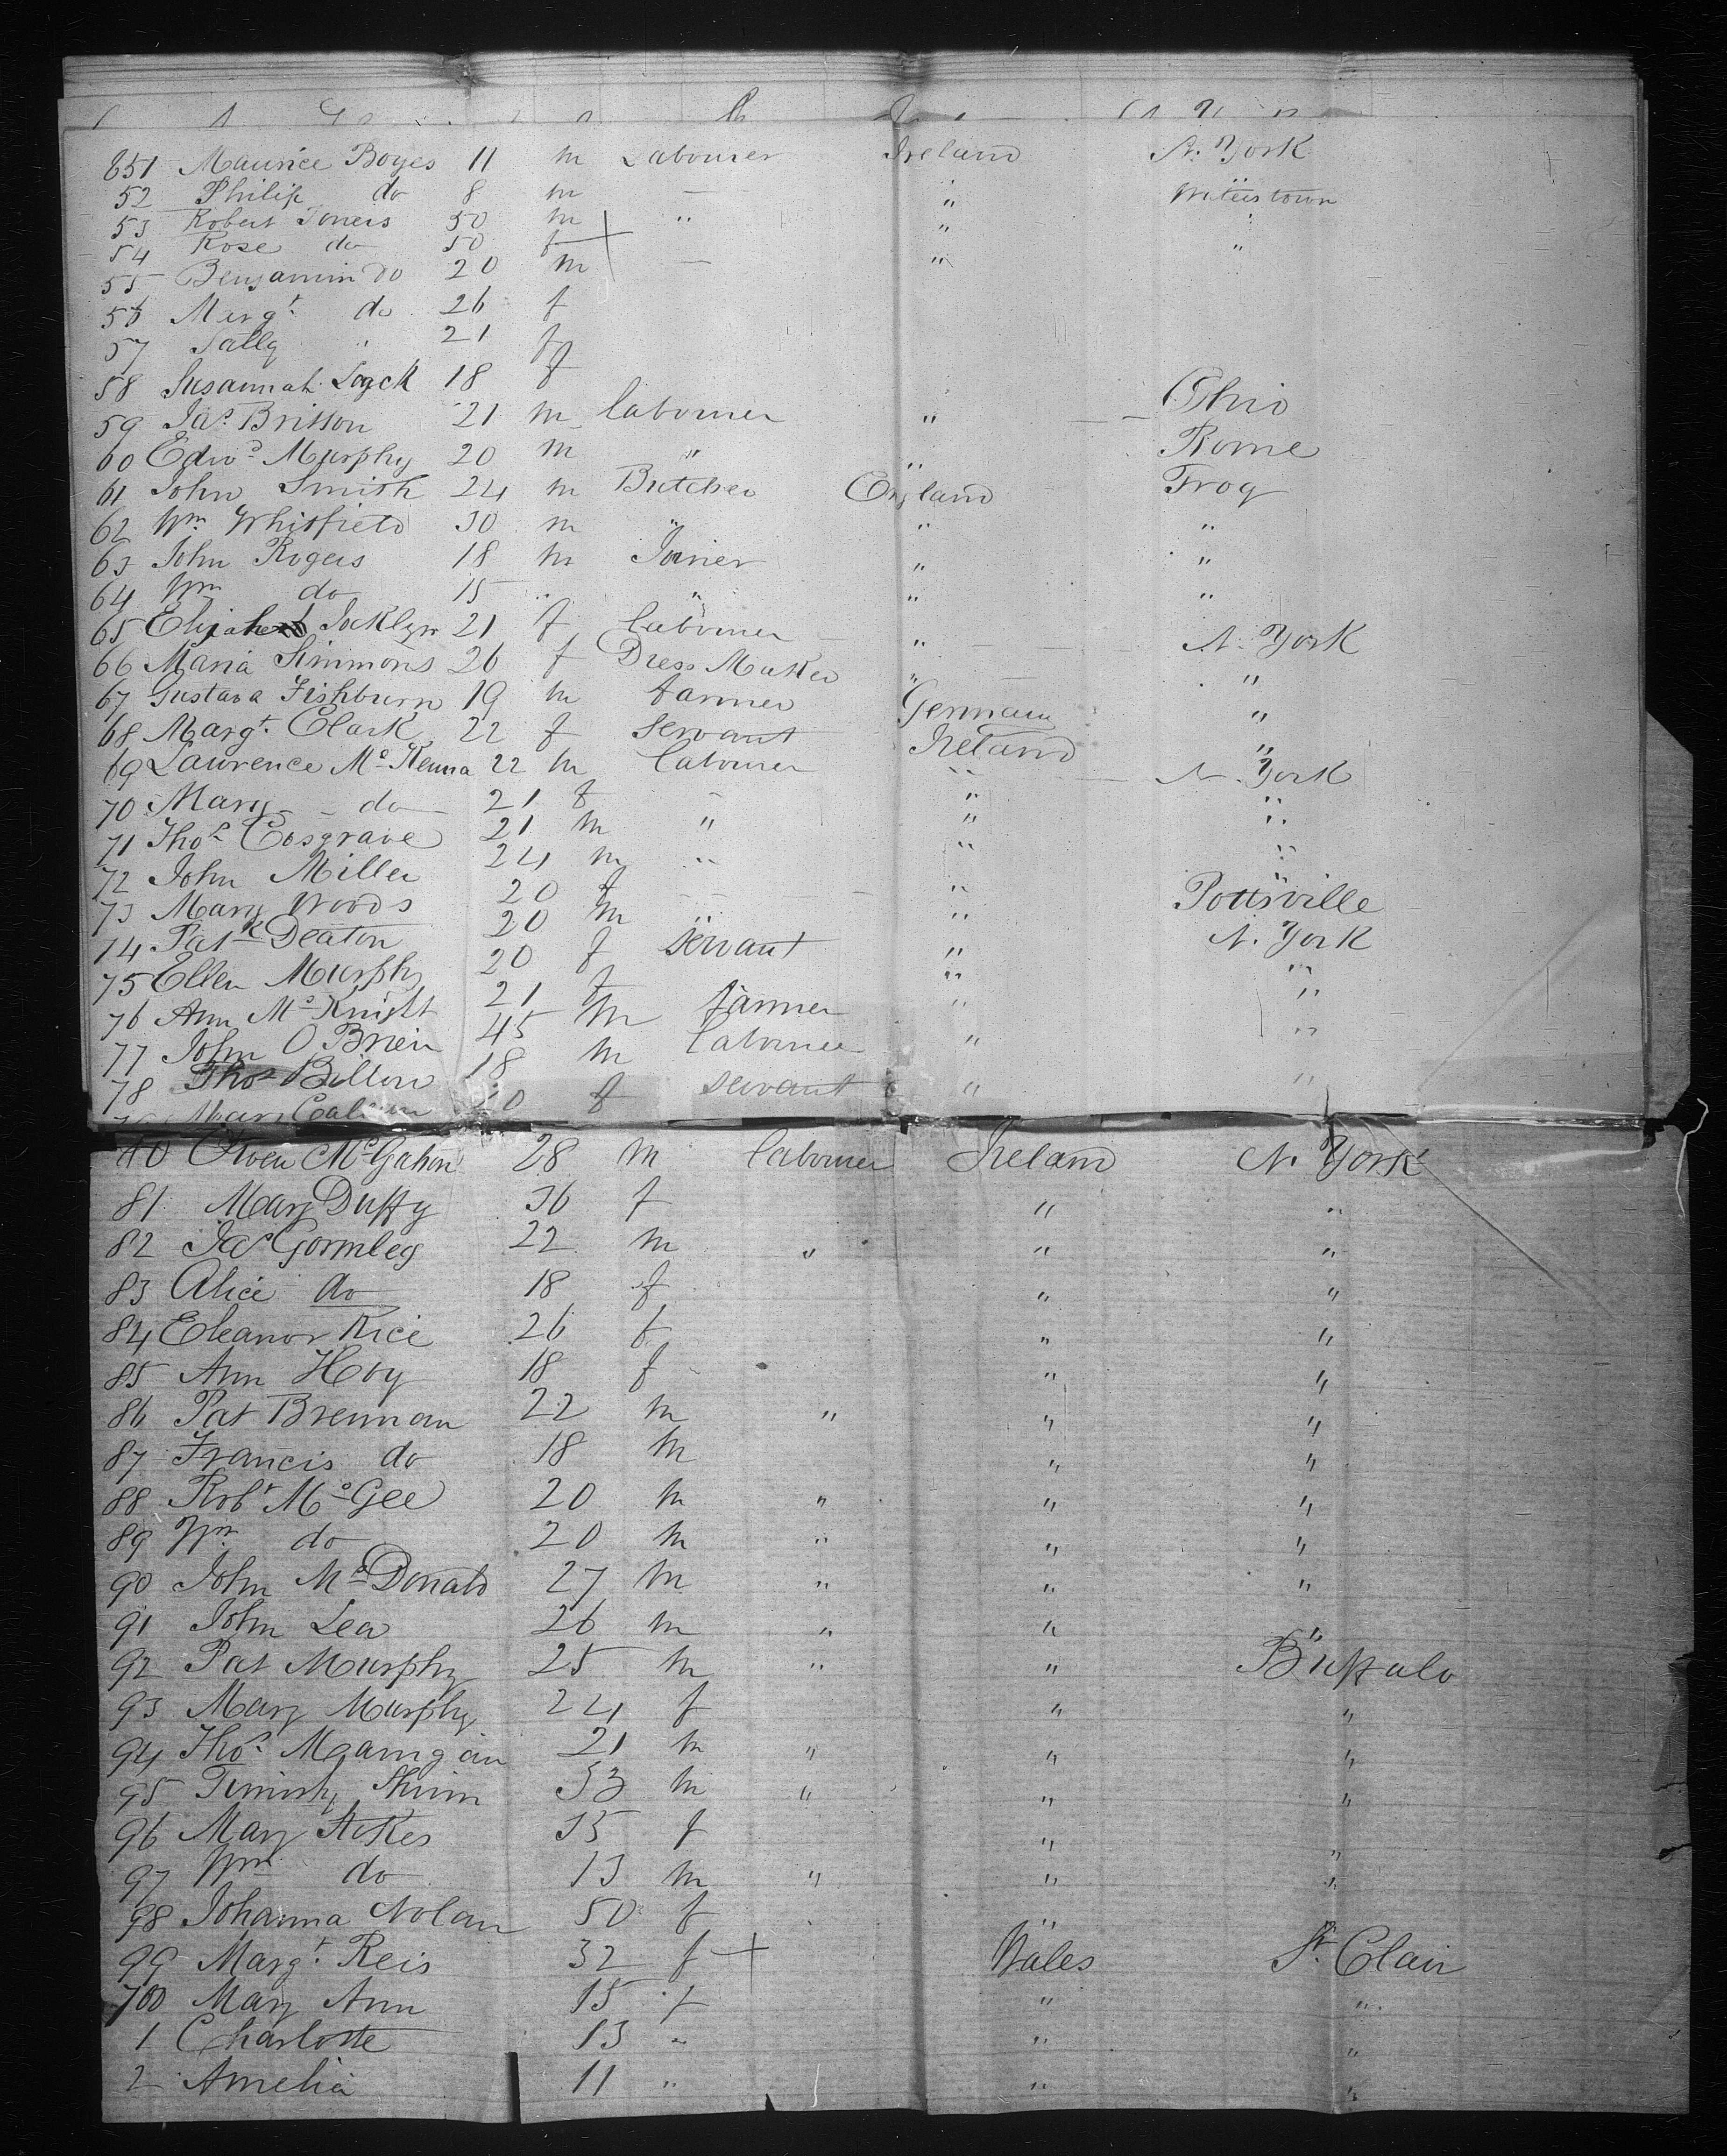 651 Maurice Boyes 11 m Labourer Ireland N. York
52 Philip do 8 m — " "
53 Robert Joners 50 m " " Witeistown
54 Rose do 50 f " "
55 Benjamin do 20 m — " "
56 Marg.t do 26 f
57 Sally " 21 f
58 Susannah 18 f
59 Jas. Britton 21 m labourer " Ohio
60 Edwd. Murphy 20 m " " Rome
61 John Smith 24 m Butcher England Troy
62 Wm. Whitfield 30 m " " "
63 John Rogers 18 m Joiner " "
64 Wm do 15 " " " "
65 Elizabeth Jocklyn 21 f labourer " N. York
66 Maria Simmons 26 f Dress Maker " "
67 Gustava Fishburn 19 m farmer Germany "
68 Margt. Clark 22 f servant Ireland "
69 Laurence McKenna 22 m labourer " N. York
70 Mary do 21 f " " "
71 Thos. Cosgrave 21 m " " "
72 John Miller 24 m " " "
73 Mary Woods 20 f — " "
74 Patk Deaton 20 m " " Pottsville
75 Ellen Murphy 20 f servant " N. York
76 Ann McKnight 21 f " "
77 John O Brien 45 m farmer " "
78 Thos Bilton 18 m labourer " "
Mary f servant " "
80 Owen McGahon 28 m labourer Ireland N. York
81 Mary Duffy 36 f " "
82 Jas Gormley 22 m " " "
83 Alice do 18 f " "
84 Eleanor Rice 26 f " "
85 Ann Hoy 18 f " "
86 Pat Brennan 22 m " " "
87 Francis do 18 m " "
88 Robt McGee 20 m " " "
89 Wm. do 20 m " " "
90 John McDonald 27 m " " "
91 John Lea 26 m " " "
92 Pat Murphy 25 m " " Buffalo
93 Mary Murphy 24 f " "
94 Thos. 21 m " " "
95 33 m " " "
96 Mary Stokes 35 f " "
97 Wm do 13 m " " "
98 Johanna Nolan 50 f "
99 Margt. Reis 32 f Wales St. Clair
700 Mary Ann 15 f " "
1 Charlotte 13 " " "
2 Amelia 11 " " "